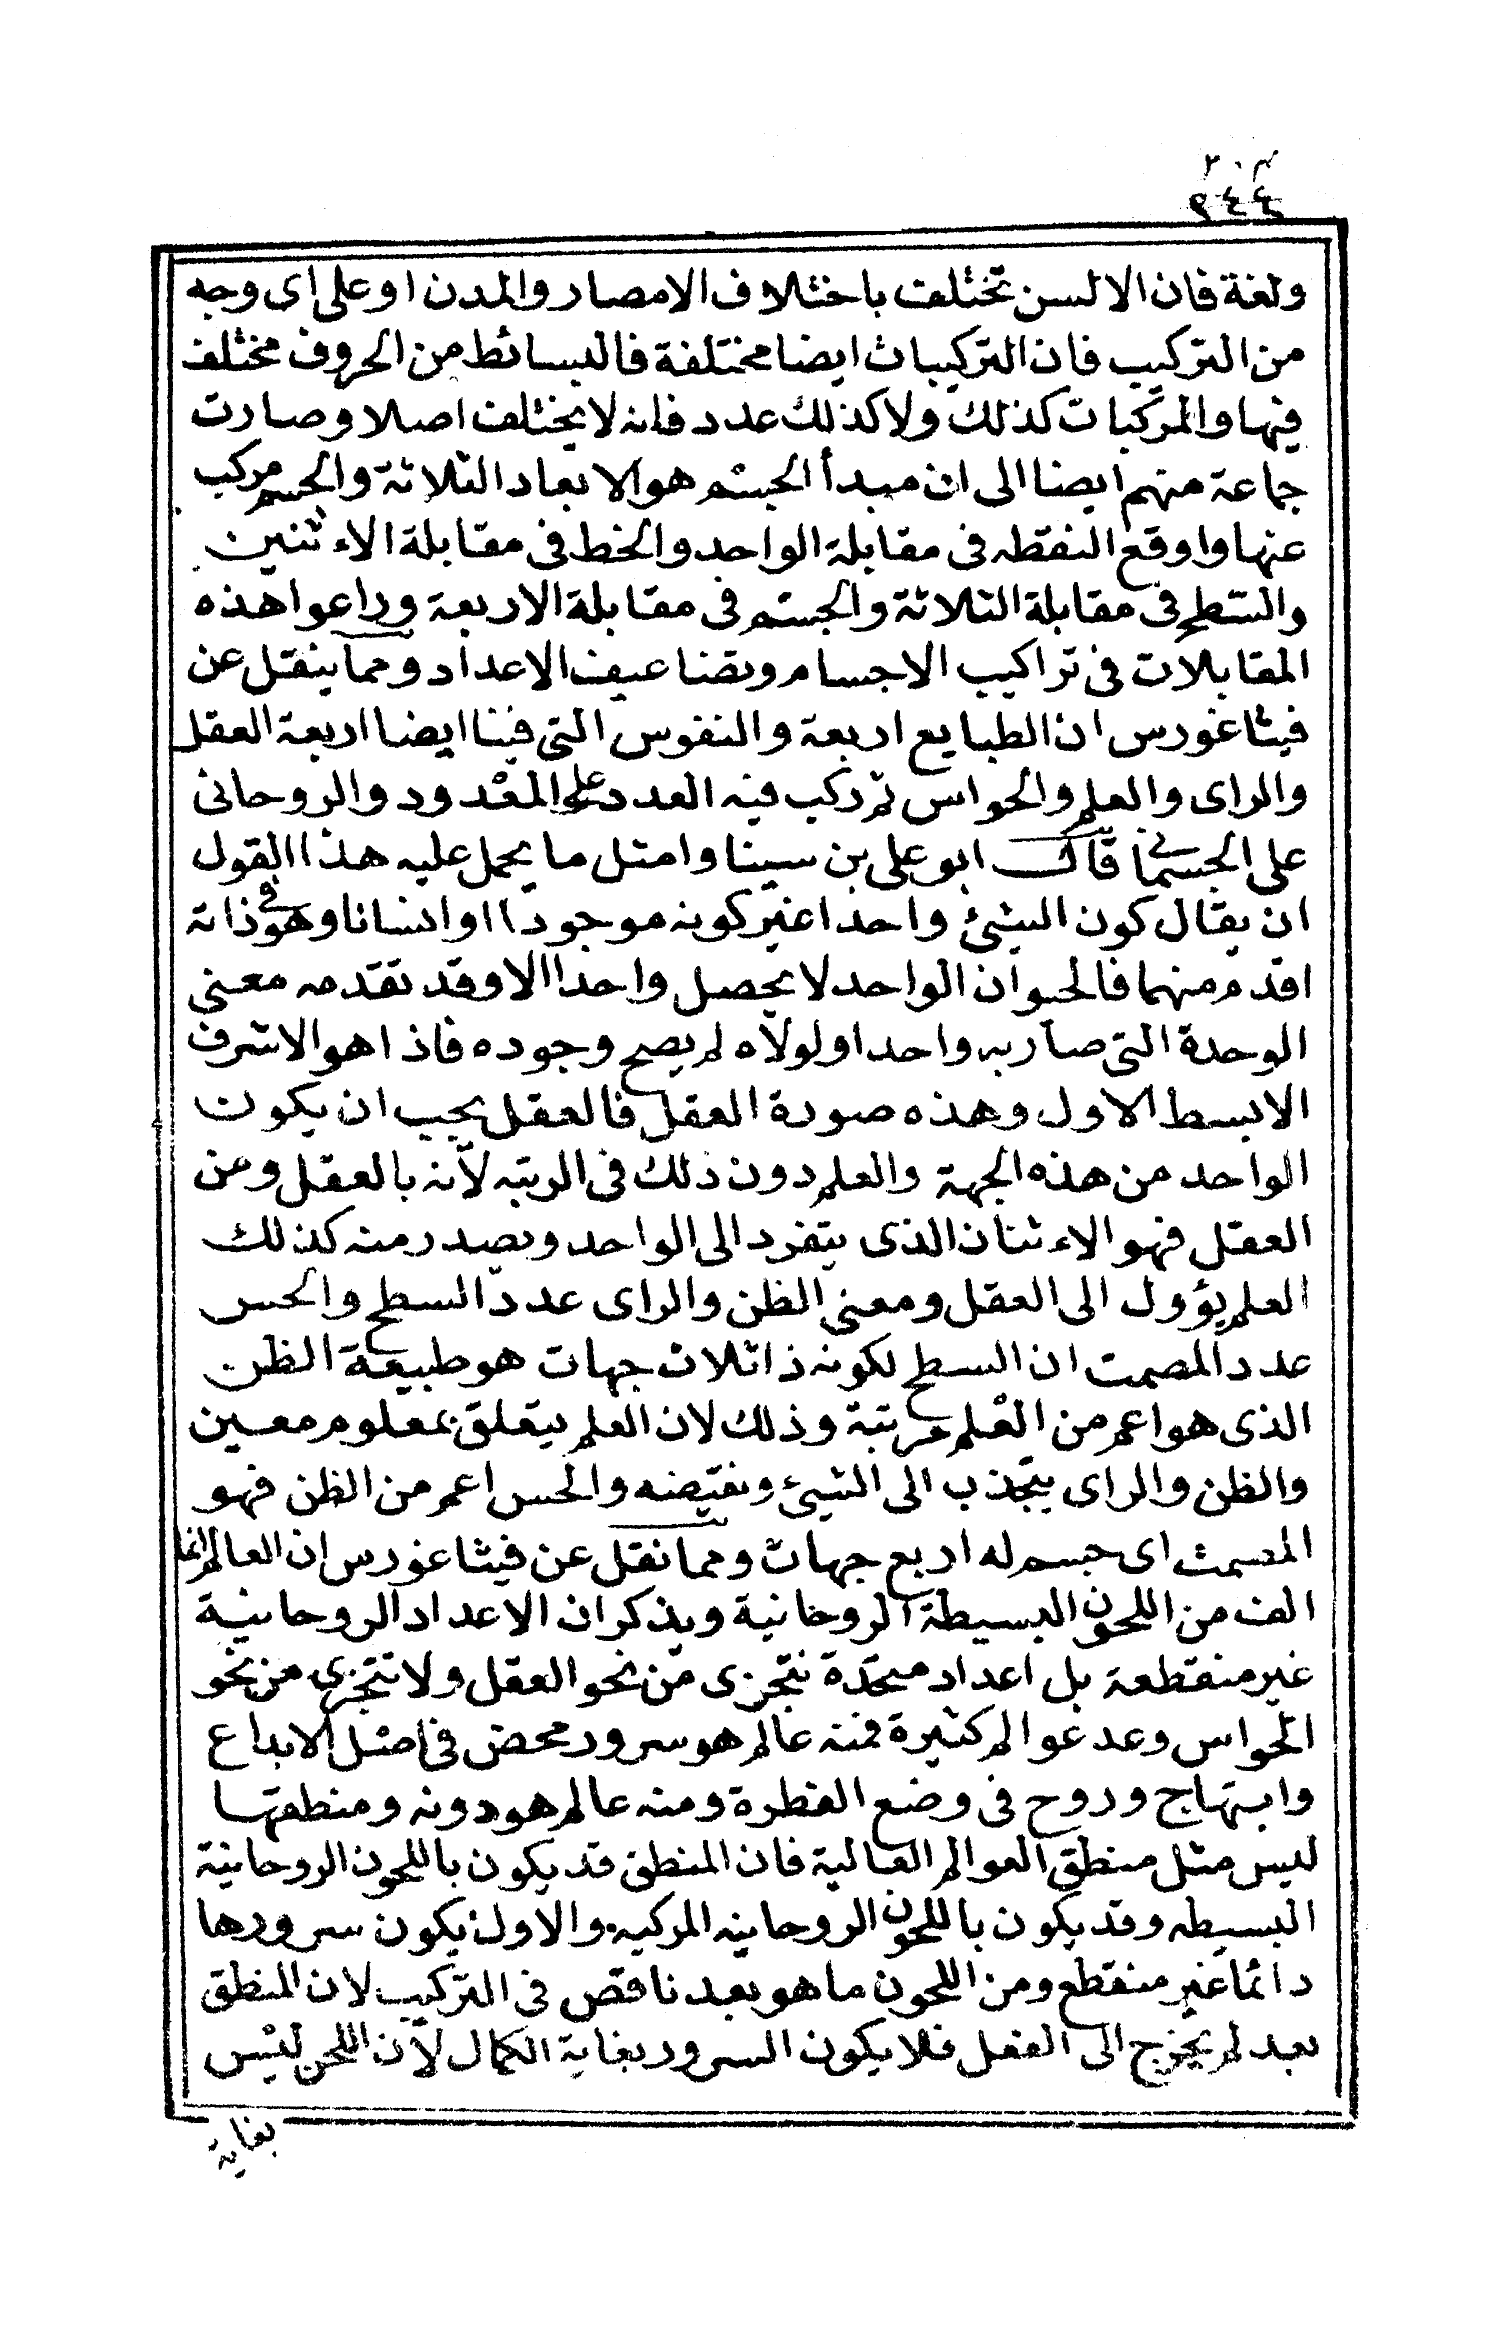 ٢٠٣
٤٤٩
ولغة فان الالسن تختلف باختلاف الامصار والمدن او على اى وجه
من التركيب فان التركيبات ايضا مختلفة فالبسائط من الحروف مختلف
فيها والمركبات كذلك ولا كذلك عدد فانه لا يختلف اصلا وصارت
جماعة منهم ايضا الى ان مبدأ الجسم هو الابعاد الثلاثة والجسم مركب
عنها واوقع النقطه فى مقابلة الواحد والخط فى مقابلة الاءثنين
والسطح فى مقابلة الثلاثة والجسم فى مقابلة الاربعة وراعوا هذه
المقابلات فى تراكيب الاجسام وتضاعيف الاعداد ومما ينقل عن
فيثاغورس ان الطبايع اربعة والنفوس التى فينا ايضا اربعة العقل
والراى والعلم والحواس ثم ركب فيه العدد على المعدود والروحانى
على الجسمانى قال ابو على بن سينا وامثل ما يحمل عليه هذا القول
ان يقال كون الشىء واحدا غير كونه موجودا او انسانا وهو فى ذاته
اقدم منهما فالحيوان الواحد لا يحصل واحدا الا وقد تقدمه معنى
الوحدة التى صار به واحدا ولولاه لم يصح وجوده فاذا هو الاشرف
الابسط الاول وهذه صورة العقل فالعقل يجب ان يكون
الواحد من هذه الجهة والعلم دون ذلك فى الرتبه لانه بالعقل ومن
العقل فهو الاءثنان الذى يتفرد الى الواحد ويصدر منه كذلك
العلم يؤول الى العقل ومعنى الظن والراى عدد السطح والحس
عدد المصمت ان السطح لكونه ذا ثلاث جهات هو طبيعة الظن
الذى هو اعم من العلم مرتبة وذلك لان العلم يتعلق بمعلوم معين
والظن والراى ينجذب الى الشىء ونقيضه والحس اعم من الظن فهو
المصمت اى جسم له اربع جهات ومما نقل عن فيثاغورس ان العالم انما
الف من اللحون البسيطة الروحانية ويذكر ان الاعداد الروحانية
غير منقطعة بل اعداد متحدة تتجزى من نحو العقل ولا تتجزى من نحو
الحواس وعد عوالم كثيرة فمنه عالم هو سرور محض فى اصل الابداع
وابتهاج وروح فى وضع الفطرة ومنه عالم هو دونه ومنطقها
ليس مثل منطق العوالم العالية فان المنطق قد يكون باللحون الروحانية
البسيطه وقد يكون باللحون الروحانيه المركبه والاول يكون سرورها
دائما غير منقطع ومن اللحون ما هو بعد ناقص فى التركيب لان المنطق
بعد لم يخرج الى الفعل فلا يكون السرور بغاية الكمال لان اللحن ليس
بغاية